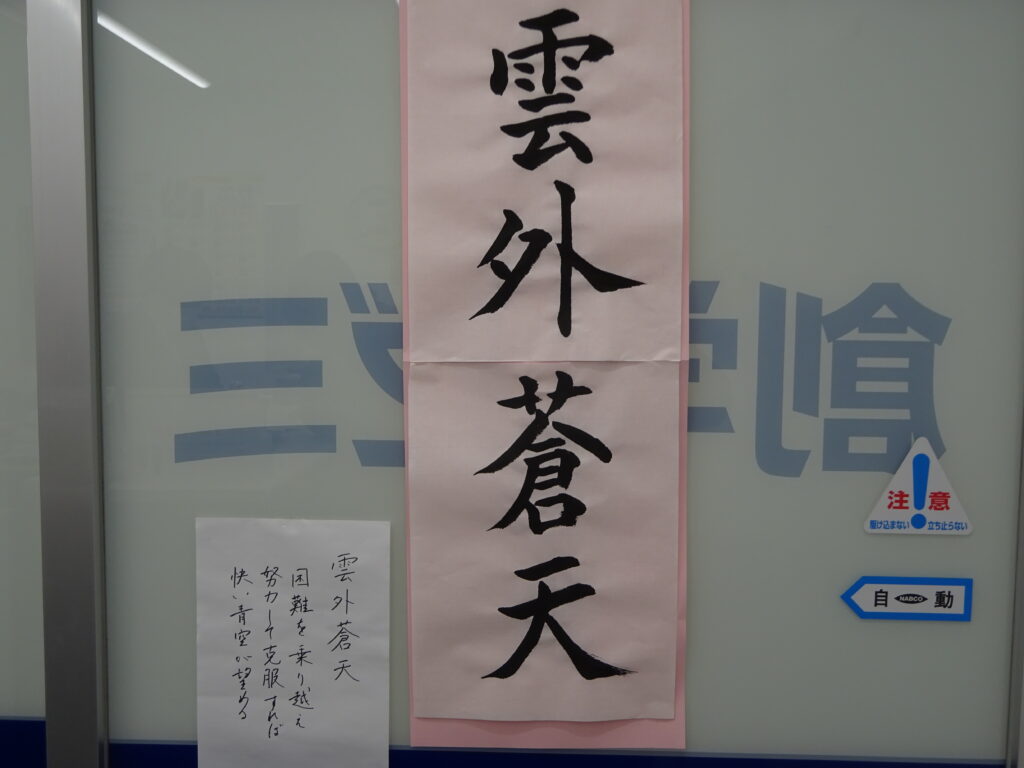 雲外蒼天
雲外蒼天
困難を乗り越え
努力して克服すれば
快い青空が望める
創学ゼミ
注!意
駆け込まない 立ち止らない
自 NABCO 動